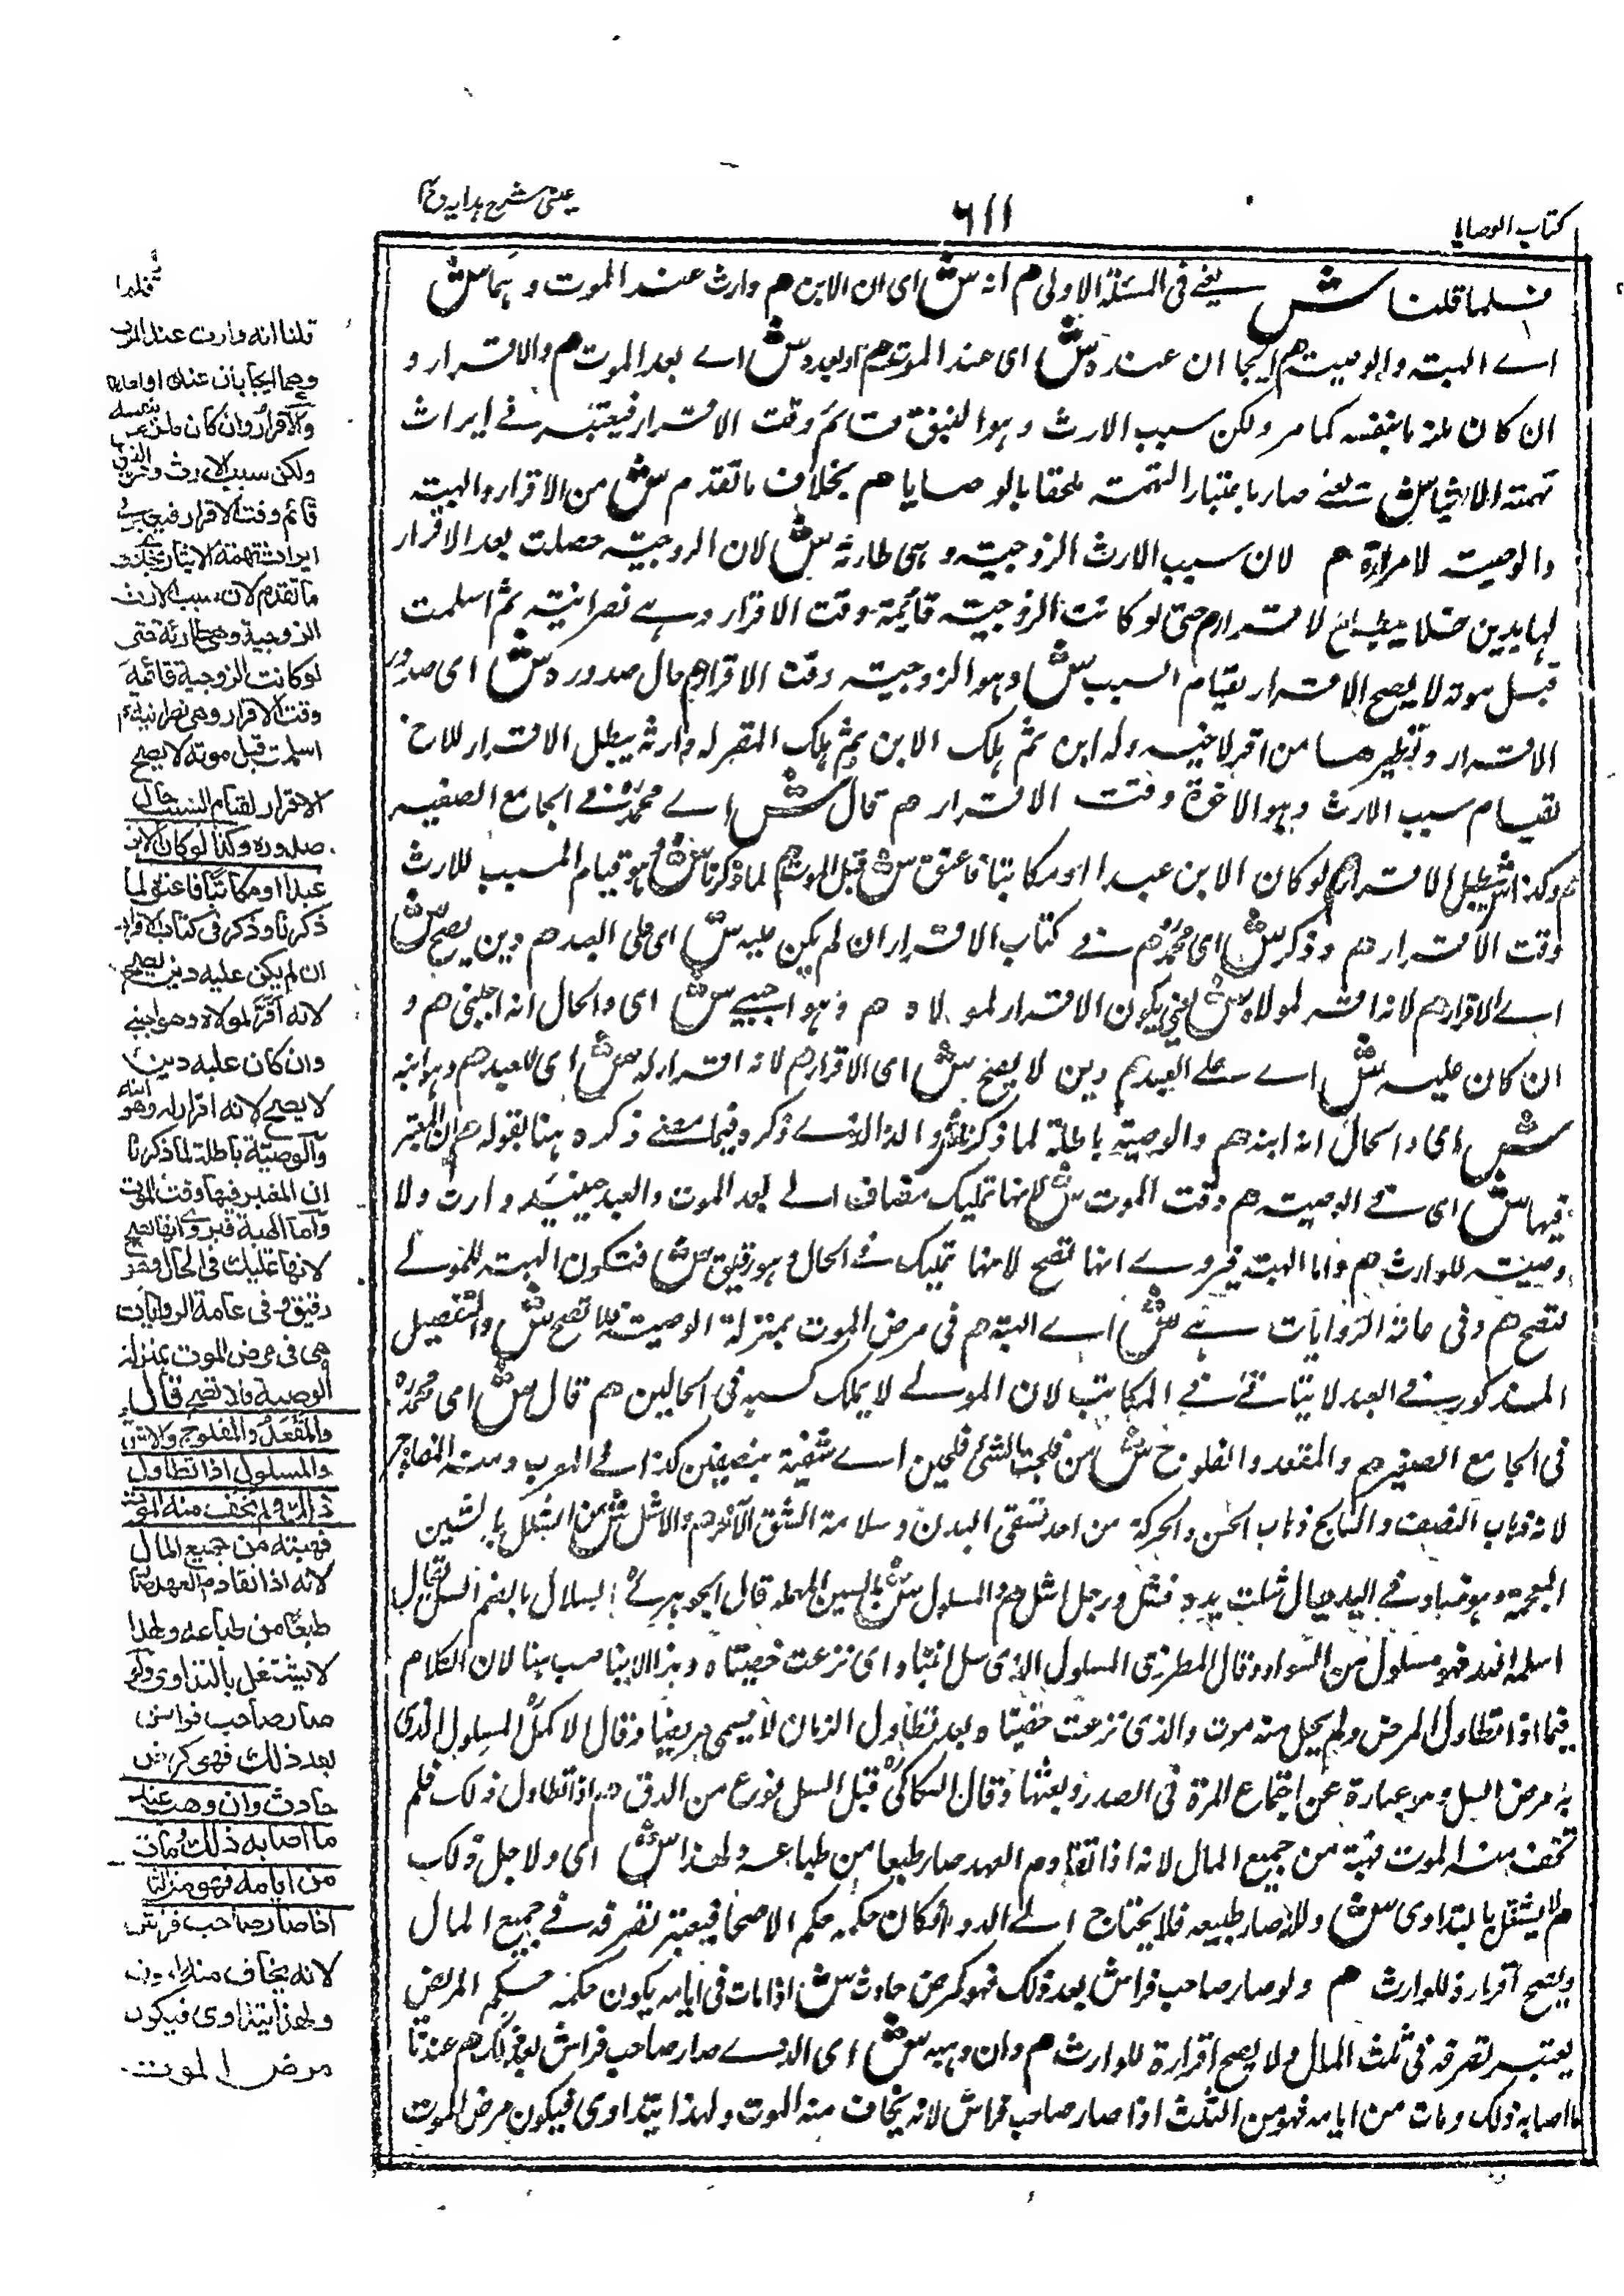 كتاب الوصايا
٦١١
عینی شرح هدایه ج ٤
فلما قلنا ش يعنے فی المسئلة الاولی م انه ش ای ان الابن م وارث عند الموت و هما ش
اے الهبته والوصیته م ایجابان عنده ش ای عند الموت م اوبعده ش اے بعد الموت م والاقرار و
ان كان ملزما بنفسه كما مر ولكن سبب الارث وهو البنوة قائم وقت الاقرار فیعتبر فے ایراث
تهمته الایثار ش یعنے صار باعتبار التهمته ملحقا بالوصایا م بخلاف ما تقدم ش من الاقرار والهبته
والوصیته لامراة م لان سبب الارث الزوجیته وهی طاریة ش لان الزوجیته حصلت بعد الاقرار
لها بدین فلا یبطل الاقرار م حتی لو كانت الزوجیته قائمة وقت الاقرار وهے نصرانیته ثم اسلمت
قبل موته لا یصح الاقرار لقیام السبب ش وهو الزوجیته وقت الاقرار م حال صدوره ش ای صدور
الاقرار ونظیرها من اقر لاخیه وله ابن ثم هلك الابن ثم هلك المقر له وارثه یبطل الاقرار للاخ
لقیام سبب الارث وهو الاخوة وقت الاقرار م قال ش اے محمدؒ فے الجامع الصغیر
م وكذا ش یبطل الاقرار م لو كان الابن عبدا او مكاتبا فاعتق ش قبل الموت م لما ذكرنا ش وهو قیام السبب للارث
وقت الاقرار م وذكر ش ای محمدؒ م فے كتاب الاقرار ان لم یكن علیه ش ای علی العبد م دین یصح ش
اے الاقرار م لانه اقر لمولاه ش یعنی یكون الاقرار لمولاه م وهو اجنبے ش ای والحال انه اجنبی م و
ان كان علیه ش اے علے العبد م دین لا یصح ش ای الاقرار م لانه اقرار له ش ای للعبد م وهو ابنه
ش ای والحال انه ابنه م والوصیة باطلة لما ذكرنا ش والذے ذكره فیما مضے ذكره هنا بقوله م ان المعتبر
فیها ش ای فے الوصیته م وقت الموت ش لانها تملیك مضاف الے بعد الموت والعبد حینئذ وارث ولا
وصیته للوارث م واما الهبته فیروے انها تصح لانها تملیك فے الحال وهو رقیق ش فتكون الهبته للمولے
فتصح م وفی عامة الروایات هے ش اے الهبته م فی مرض الموت بمنزلة الوصیته فلا تصح ش والتفصیل
المذكور فے العبد لا یتاتے فے المكاتب لان المولے لا یملك كسبه فی الحالین م قال ش ای محمدؒ
فی الجامع الصغیر م والمقعد والمفلوج ش من فلجت الشئ فلجین اے شققته بنصفین كذا فے المغرب ومنه الفالج
لانه ذهاب النصف والفالج ذهاب الحس والحركة من احد شقی البدن وسلامة الشق الآخر م والاشل ش من الشلل بالشین
المعجمة وهو فساد فے الید یقال شلت یده فشل ورجل اشل م والمسلول ش بالسین المهملة قال الجوهرے السلال بالضم السل یقال
اسله الله فهو مسلول من الشواذ وقال المطرزی المسلول الذی سل انثیاه ای نزعت خصیتاه وهذا لا یناسب هنا لان الكلام
فیما اذا تطاول المرض ولم یحل منه موت والذی نزعت خصیتاه بعد تطاول الزمان لا یسمی مریضا وقال الاكمل المسلول الذی
به مرض السل وهو عبارة عن اجتماع المرة فی الصدر ونفثها وقال الكاكی قیل السل نوع من الدق م اذا تطاول ذلك فلم
یخف منه الموت فهبته من جمیع المال لانه اذا تقادم العهد صار طبعا من طباعه ولهذا ش ای ولاجل ذلك
م لا یشتغل بالتداوی ش ولانه صار طبیعه فلا یحتاج الے الدواء فكان حكمه حكم الاصحاء فیعتبر تصرفه فے جمیع المال
ویصح اقراره للوارث م ولو صار صاحب فراش بعد ذلك فهو كمرض حادث ش اذا مات فی ایامه یكون حكمه حكم المریض
یعتبر تصرفه فی ثلث المال ولا یصح اقراره للوارث م وان وهبه ش ای الذے صار صاحب فراش بعد ذلك م عند
ما اصابه ذلك ومات من ایامه فهو من الثلث اذا صار صاحب فراش لانه یخاف منه الموت ولهذا یتداوی فیكون مرض الموت
فلما
قلنا انه وارث عند الموت
وهما ایجابان عنده او بعده
والاقرار وان كان ملزما بنفسه
ولكن سبب الارث وهو البنوة
قائم وقت الاقرار فیعتبر فی
ایراث تهمة الایثار بخلاف
ما تقدم لان سبب الارث
الزوجیة وهی طارئة حتی
لو كانت الزوجیة قائمة
وقت الاقرار وهی نصرانیة ثم
اسلمت قبل موته لا یصح
الاقرار لقیام السبب حال
صدوره وكذا لو كان الابن
عبدا او مكاتبا فاعتق لما
ذكرنا وذكر فی كتاب الاقرار
ان لم یكن علیه دین یصح
لانه اقر لمولاه وهو اجنبی
وان كان علیه دین
لا یصح لانه اقرار له وهو ابنه
والوصیة باطلة لما ذكرنا
ان المعتبر فیها وقت الموت
واما الهبة فیروی انها تصح
لانها تملیك فی الحال وهو
رقیق وفی عامة الروایات
هی فی مرض الموت بمنزلة
الوصیة فلا تصح قال
والمقعد والمفلوج والاشل
والمسلول اذا تطاول
ذلك ولم یخف منه الموت
فهبته من جمیع المال
لانه اذا تقادم العهد صار
طبعا من طباعه ولهذا
لا یشتغل بالتداوی ولو
صار صاحب فراش
بعد ذلك فهو كمرض
حادث وان وهب عند
ما اصابه ذلك ومات
من ایامه فهو من الثلث
اذا صار صاحب فراش
لانه یخاف منه الموت
ولهذا یتداوی فیكون
مرض الموت